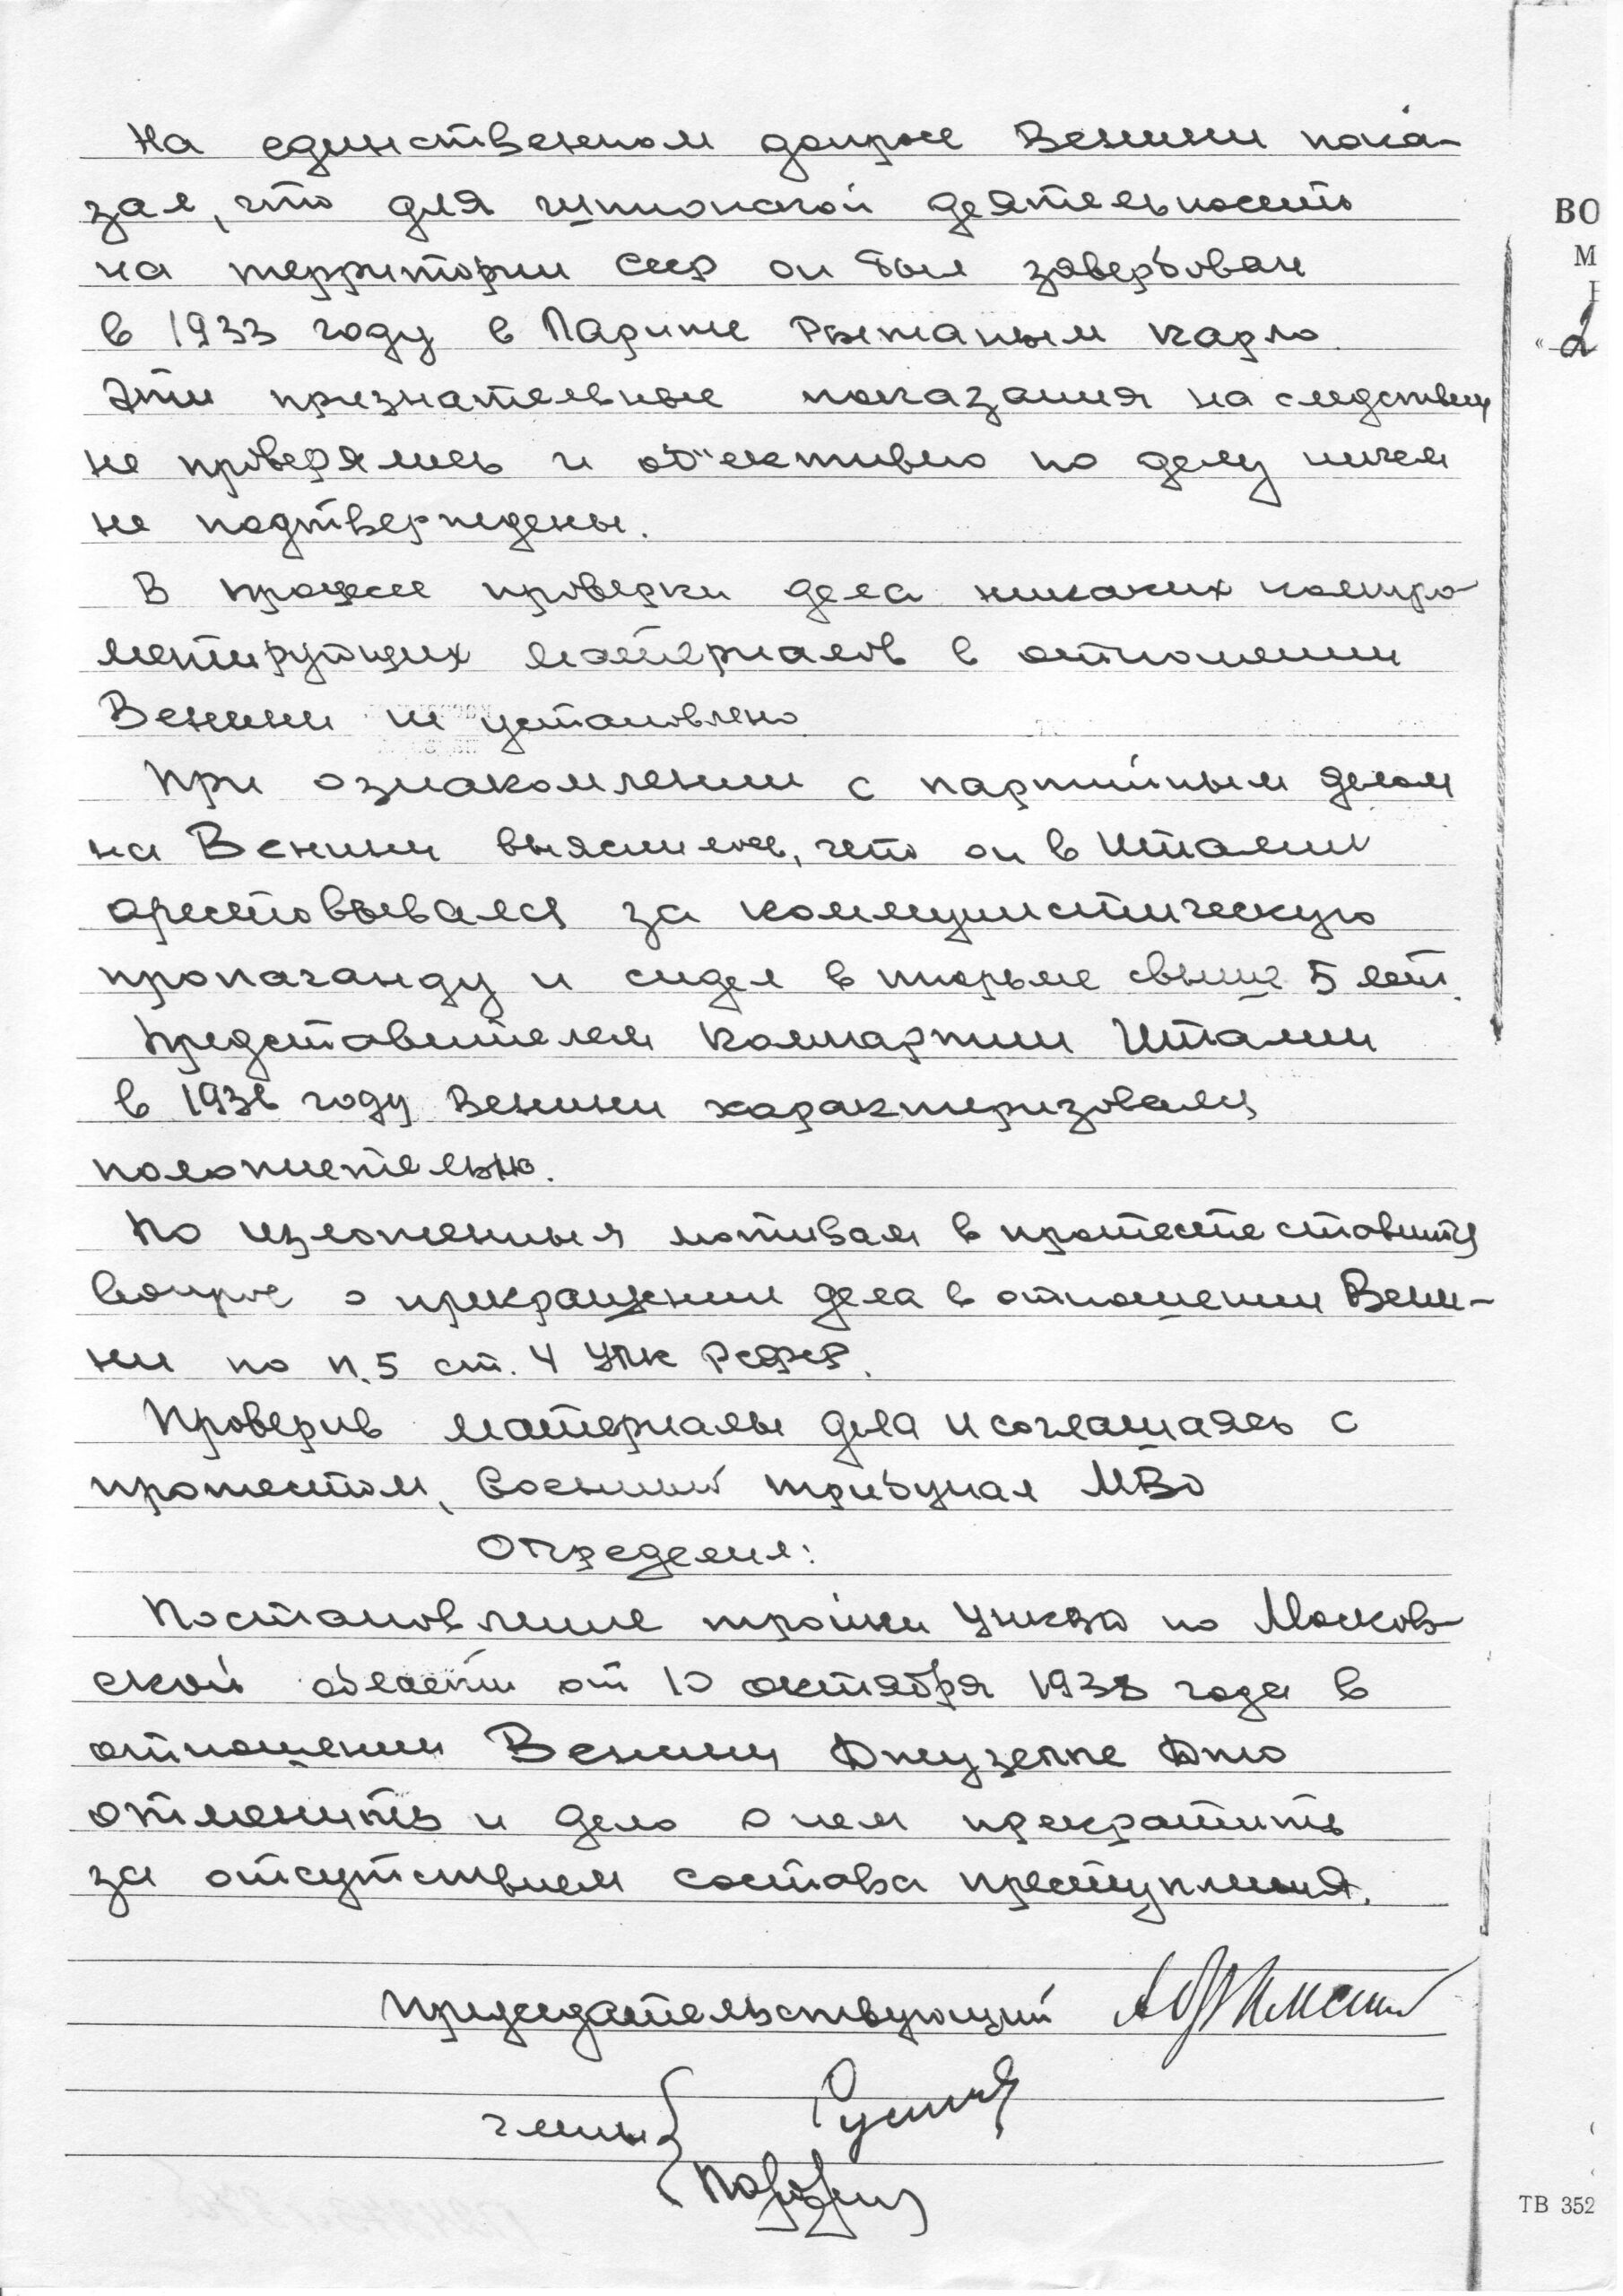 На единственном допросе Венини пока-
зал, что для шпионской деятельности
на территории СССР он был завербован
в 1933 году в Париже Рытаным Карло.
Эти признательные показания на следствии
не проверялись и об"ективно по делу ничем
не подтверждены.
В процессе проверки дела никаких компро-
метирующих материалов в отношении
Венини не установлено
При ознакомлении с партийным делом
на Венини выяснилось, что он в Италии
арестовывался за коммунистическую
пропаганду и сидел в тюрьме свыше 5 лет.
Представителем Компартии Италии
в 1938 году Венини характеризовался
положительно.
По изложенным мотивам в протесте ставится
вопрос о прекращении дела в отношении Вени-
ни по п.5 ст. 4 УПК РСФСР.
Проверив материалы дела и соглашаясь с
протестом, Военный трибунал МВО
Определил:
Постановление тройки УНКВД по Москов-
ской области от 10 октября 1938 года в
отношении Венини Джузеппе Джо
отменить и дело о нем прекратить
за отсутствием состава преступления.
Председательствующий
члены
ВО
М
« 2
ТВ 352